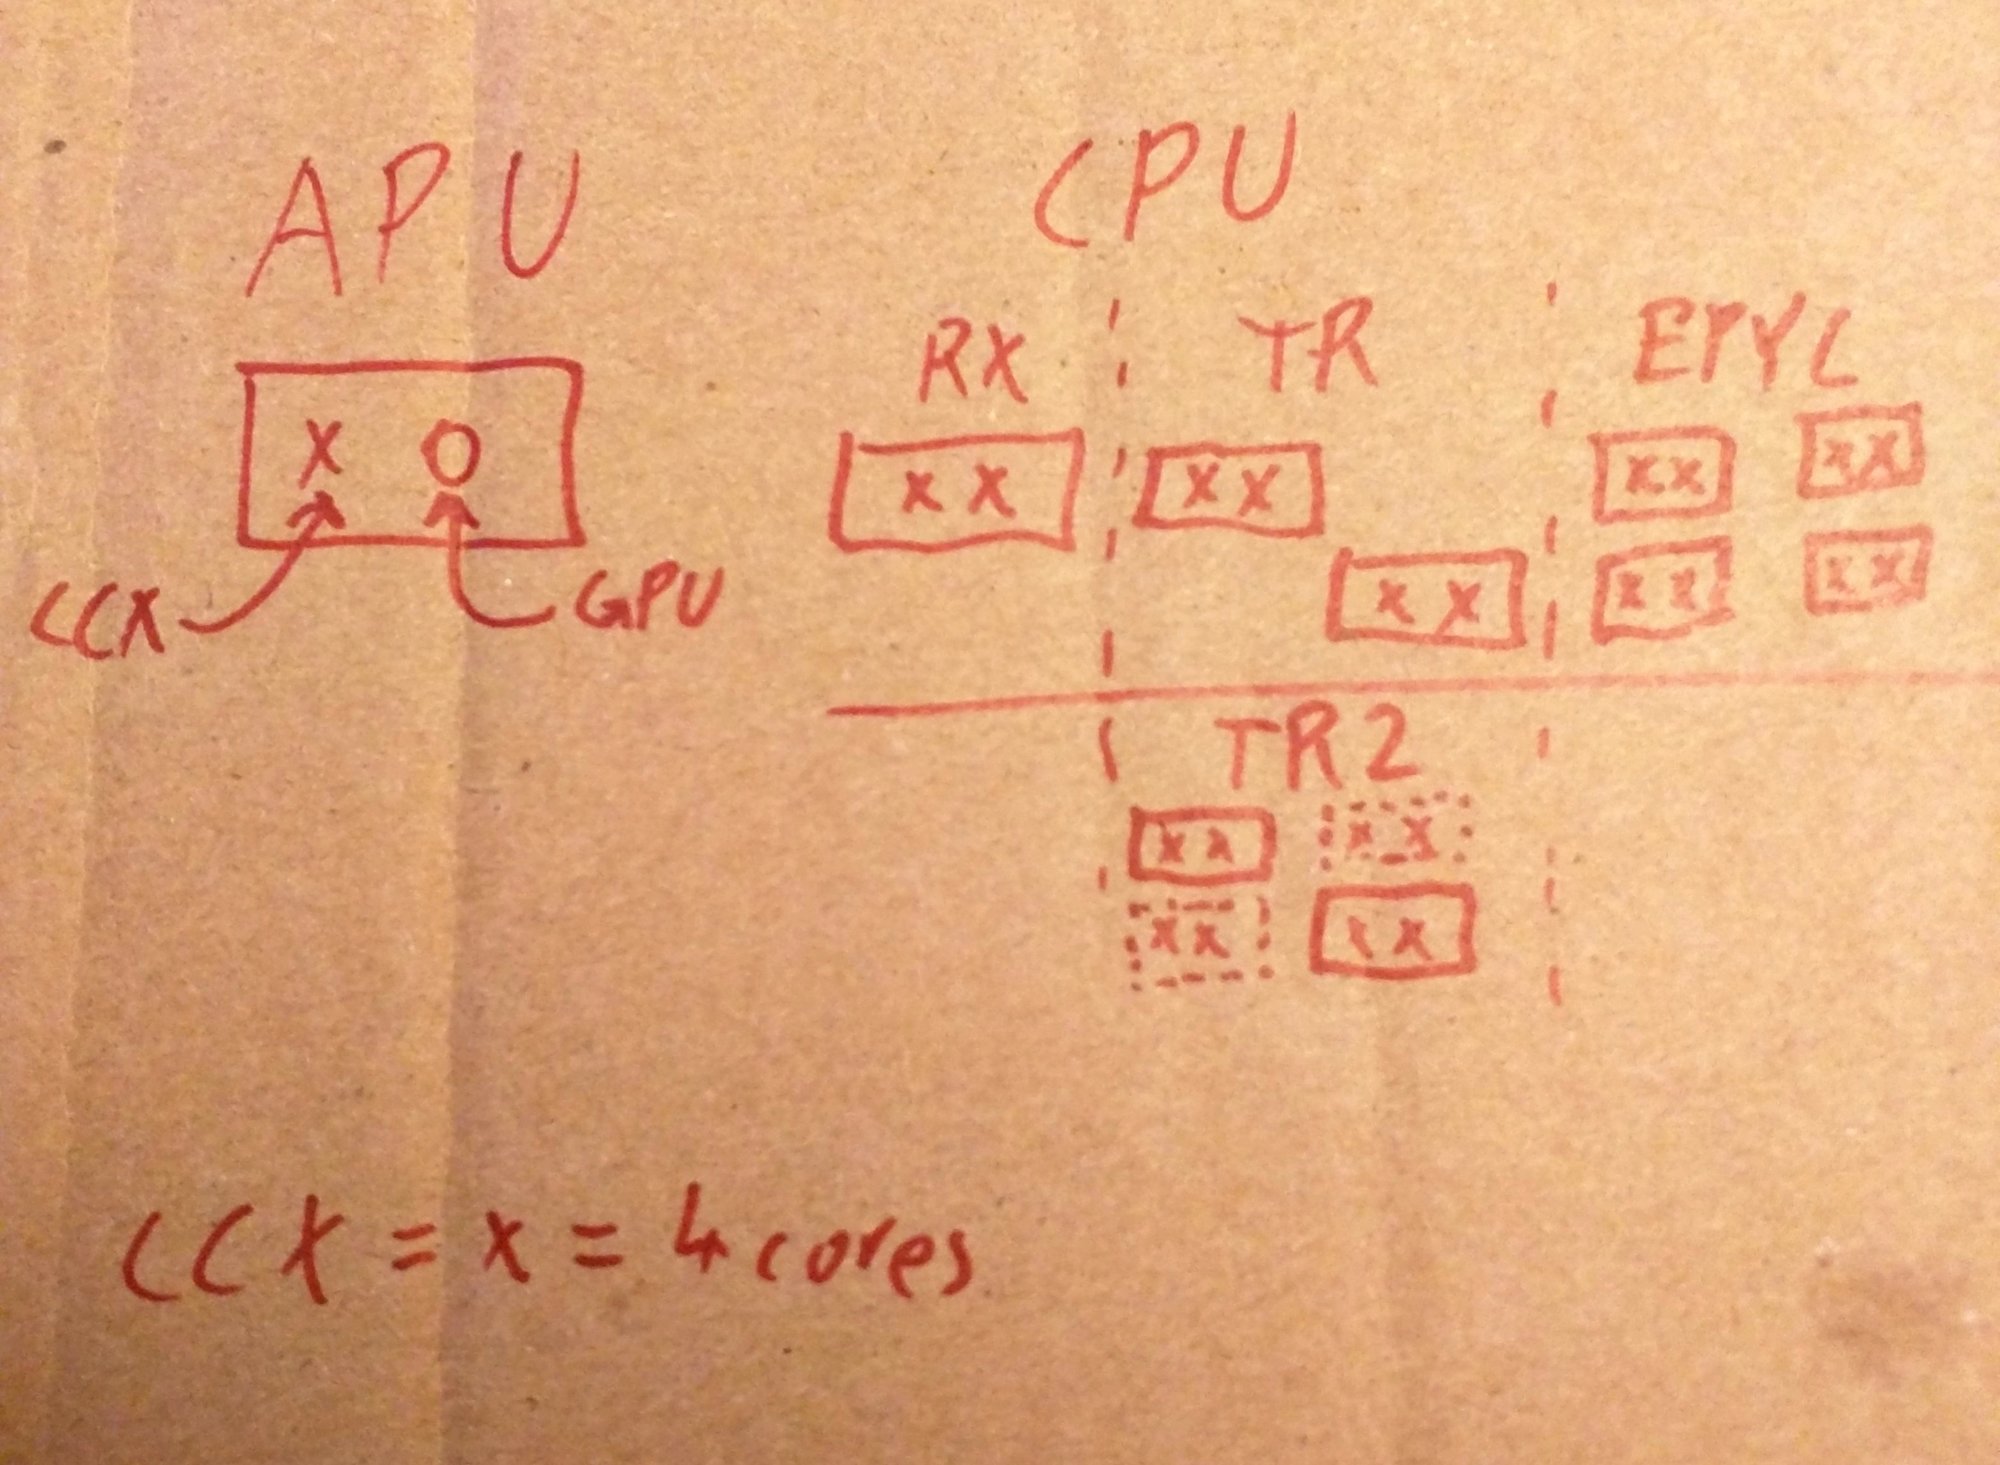 APU
X O
CCX
GPU
CPU
RX
X X
TR
X X
X X
EPYC
X X
X X
X X
X X
TR2
X X
X X
X X
X X
CCX = X = 4 cores